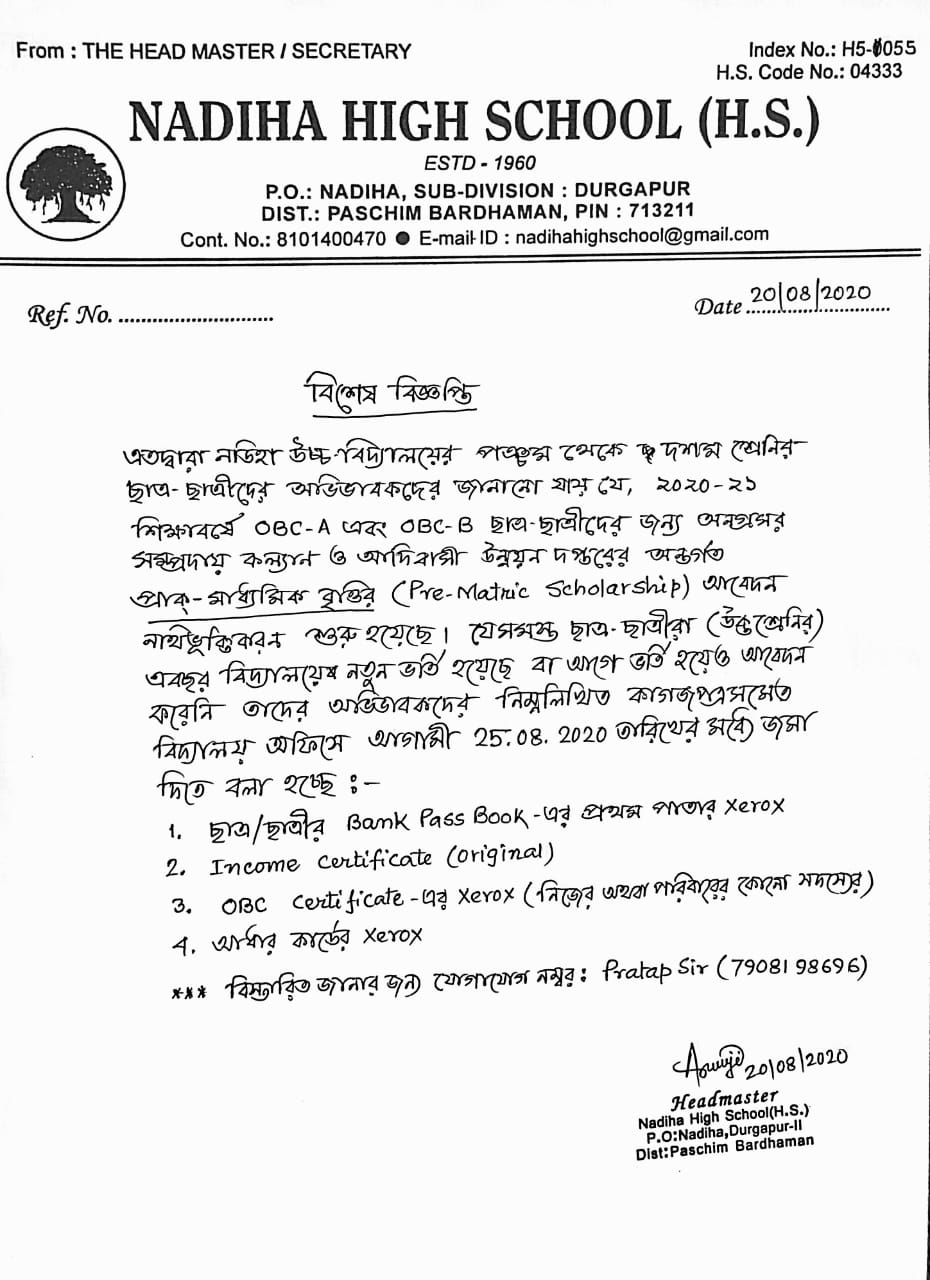 From : THE HEAD MASTER / SECRETARY
Index No.: H5-0055
H.S. Code No.: 04333
NADIHA HIGH SCHOOL (H.S.)
ESTD - 1960
P.O.: NADIHA, SUB-DIVISION : DURGAPUR
DIST.: PASCHIM BARDHAMAN, PIN : 713211
Cont. No.: 8101400470 ● E-mail ID : nadihahighschool@gmail.com
Ref. No. ............................
Date 20/08/2020
বিশেষ বিজ্ঞপ্তি
এতদ্বারা নডিহা উচ্চ-বিদ্যালয়ের পঞ্চম থেকে দশম শ্রেনির
ছাত্র-ছাত্রীদের অভিভাবকদের জানানো যায় যে, ২০২০-২১
শিক্ষাবর্ষে OBC-A এবং OBC-B ছাত্র-ছাত্রীদের জন্য অনগ্রসর
সম্প্রদায় কল্যান ও আদিবাসী উন্নয়ন দপ্তরের অন্তর্গত
প্রাক্-মাধ্যমিক বৃত্তির (Pre-Matric Scholarship) আবেদন
নথিভুক্তিকরন শুরু হয়েছে। যেসমস্ত ছাত্র-ছাত্রীরা (উক্ত শ্রেনির)
এবছর বিদ্যালয়ে নতুন ভর্তি হয়েছে বা আগে ভর্তি হয়েও আবেদন
করেনি তাদের অভিভাবকদের নিম্নলিখিত কাগজপত্রসমেত
বিদ্যালয় অফিসে আগামী 25.08.2020 তারিখের মধ্যে জমা
দিতে বলা হচ্ছে :-
1. ছাত্র/ছাত্রীর Bank Pass Book-এর প্রথম পাতার Xerox
2. Income Certificate (Original)
3. OBC Certificate-এর Xerox (নিজের অথবা পরিবারের কোনো সদস্যের)
4. আধার কার্ডের Xerox
*** বিস্তারিত জানার জন্য যোগাযোগ নম্বর: Pratap Sir (7908198696)
20/08/2020
Headmaster
Nadiha High School(H.S.)
P.O:Nadiha,Durgapur-II
Dist:Paschim Bardhaman